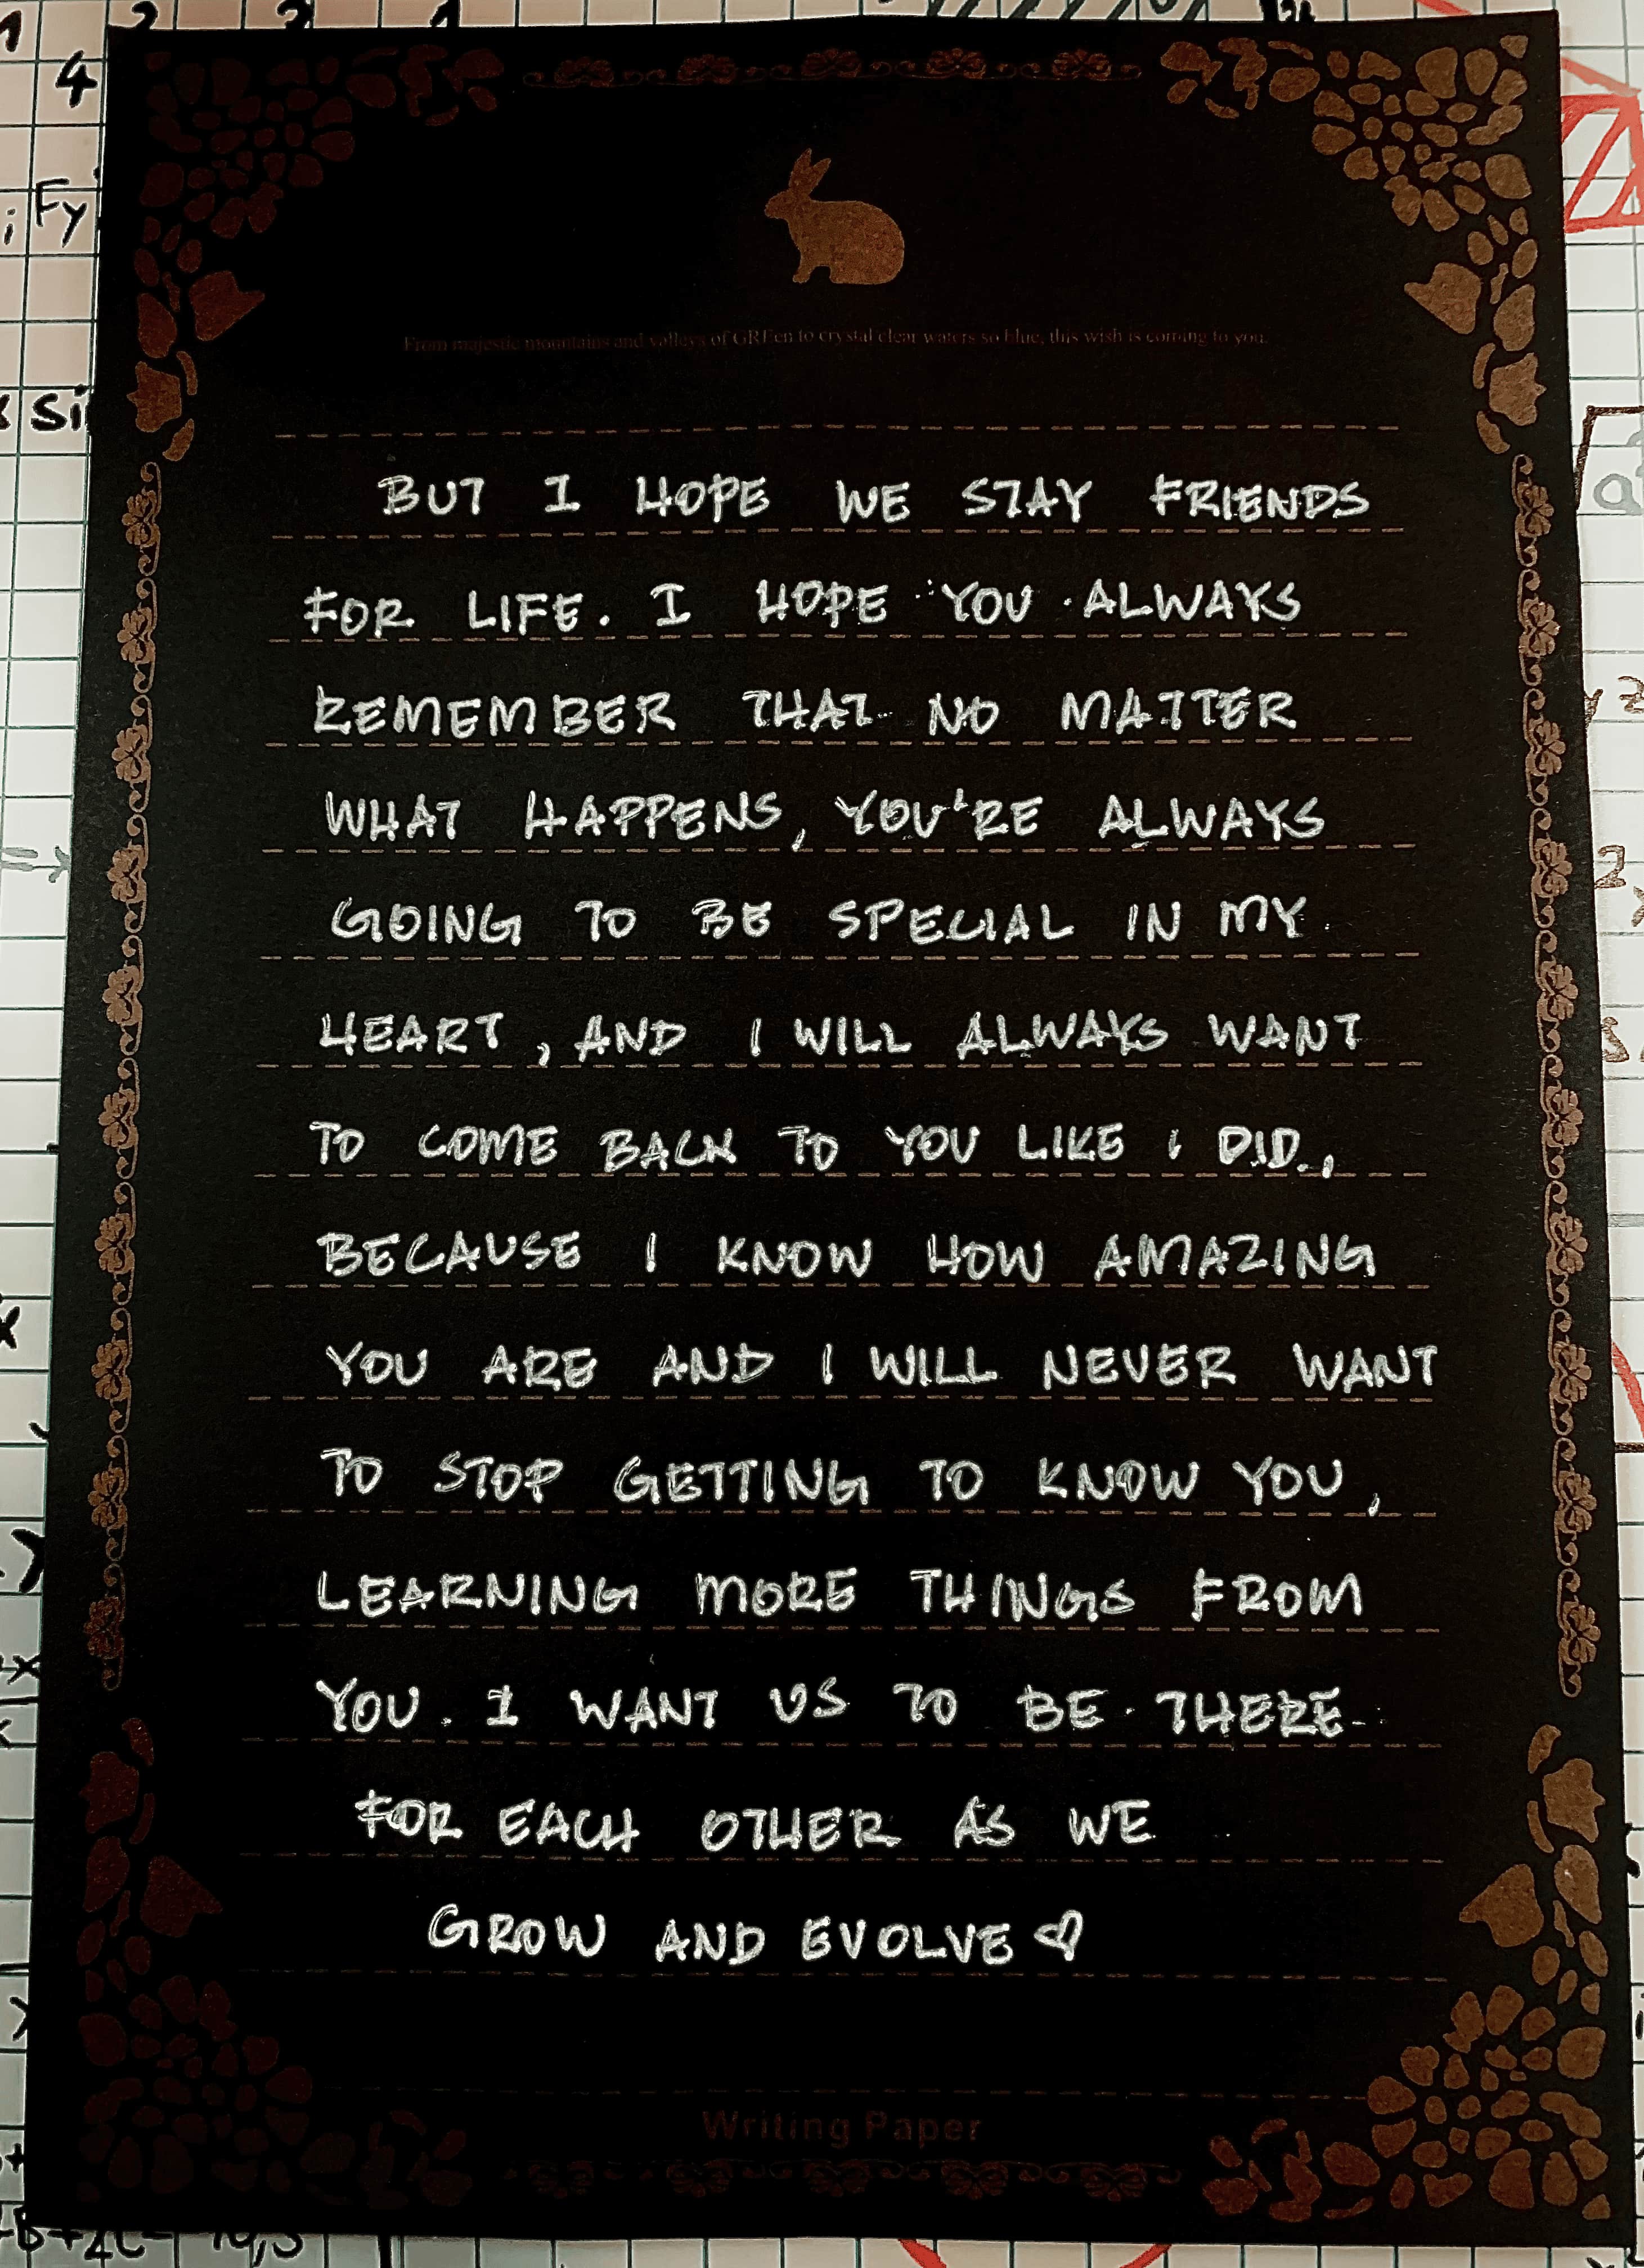 From majestic mountains and valleys of GREen to crystal clear waters so blue, this wish is coming to you.
BUT I HOPE WE STAY FRIENDS
FOR LIFE. I HOPE YOU ALWAYS
REMEMBER THAT NO MATTER
WHAT HAPPENS, YOU'RE ALWAYS
GOING TO BE SPECIAL IN MY
HEART, AND I WILL ALWAYS WANT
TO COME BACK TO YOU LIKE I DID,
BECAUSE I KNOW HOW AMAZING
YOU ARE AND I WILL NEVER WANT
TO STOP GETTING TO KNOW YOU,
LEARNING MORE THINGS FROM
YOU. I WANT US TO BE THERE
FOR EACH OTHER AS WE
GROW AND EVOLVE ♡
Writing Paper